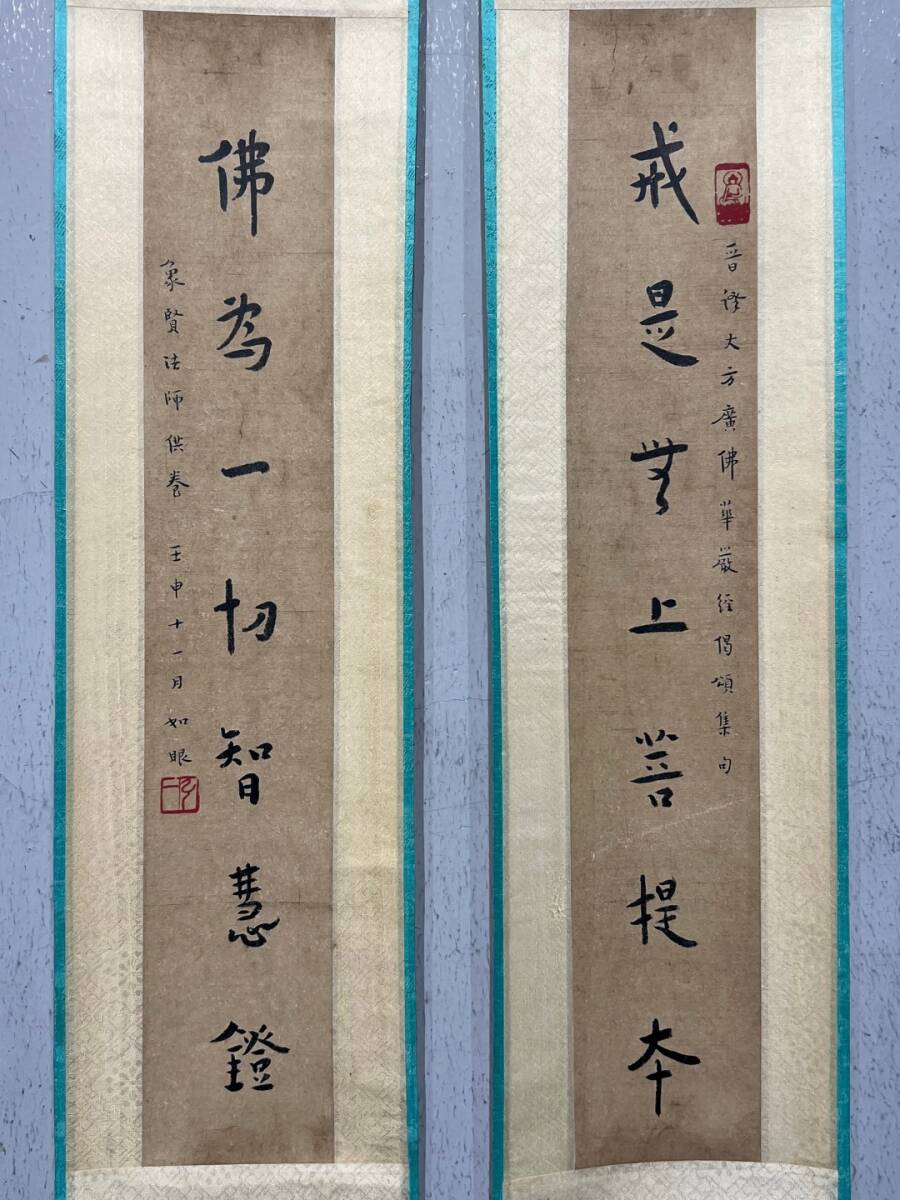 戒是無上菩提本
晉譯大方廣佛華嚴經偈頌集句
佛為一切智慧鐙
象賢法師供養 壬申十一月 如眼